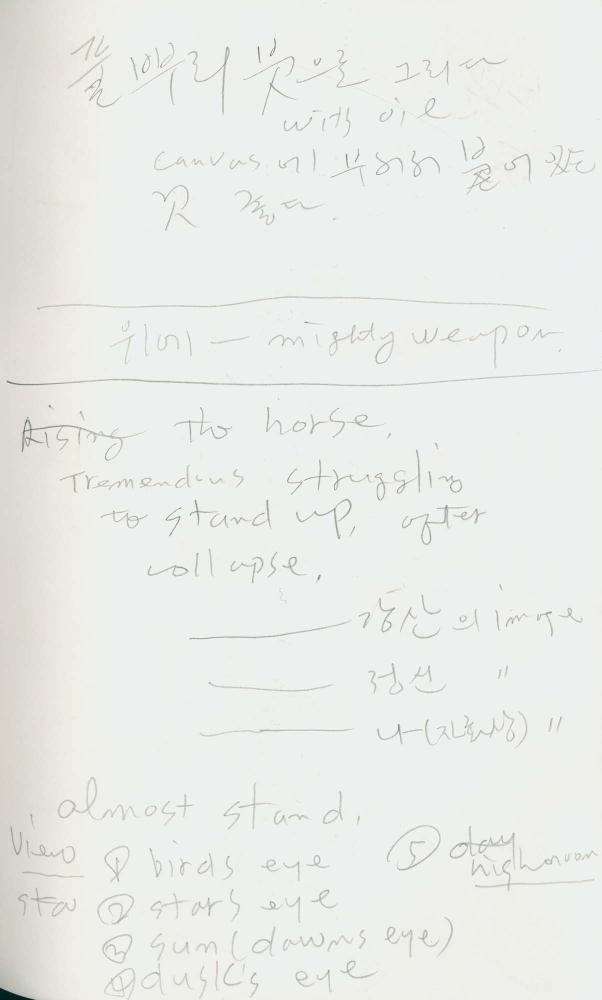 풀뿌리 붓으로 그리다
with oil
canvas에 부러져 붙어 있는
것 좋다.
위에 — mighty weapon.
Rising the horse.
Tremendous struggling
to stand up, after
collapse.
강산의 image
정선 〃
나(자화상) 〃
almost stand.
View ① birds eye ⑤ day
highnoon
sta ② stars eye
③ sun (dawns eye)
④ dusk's eye